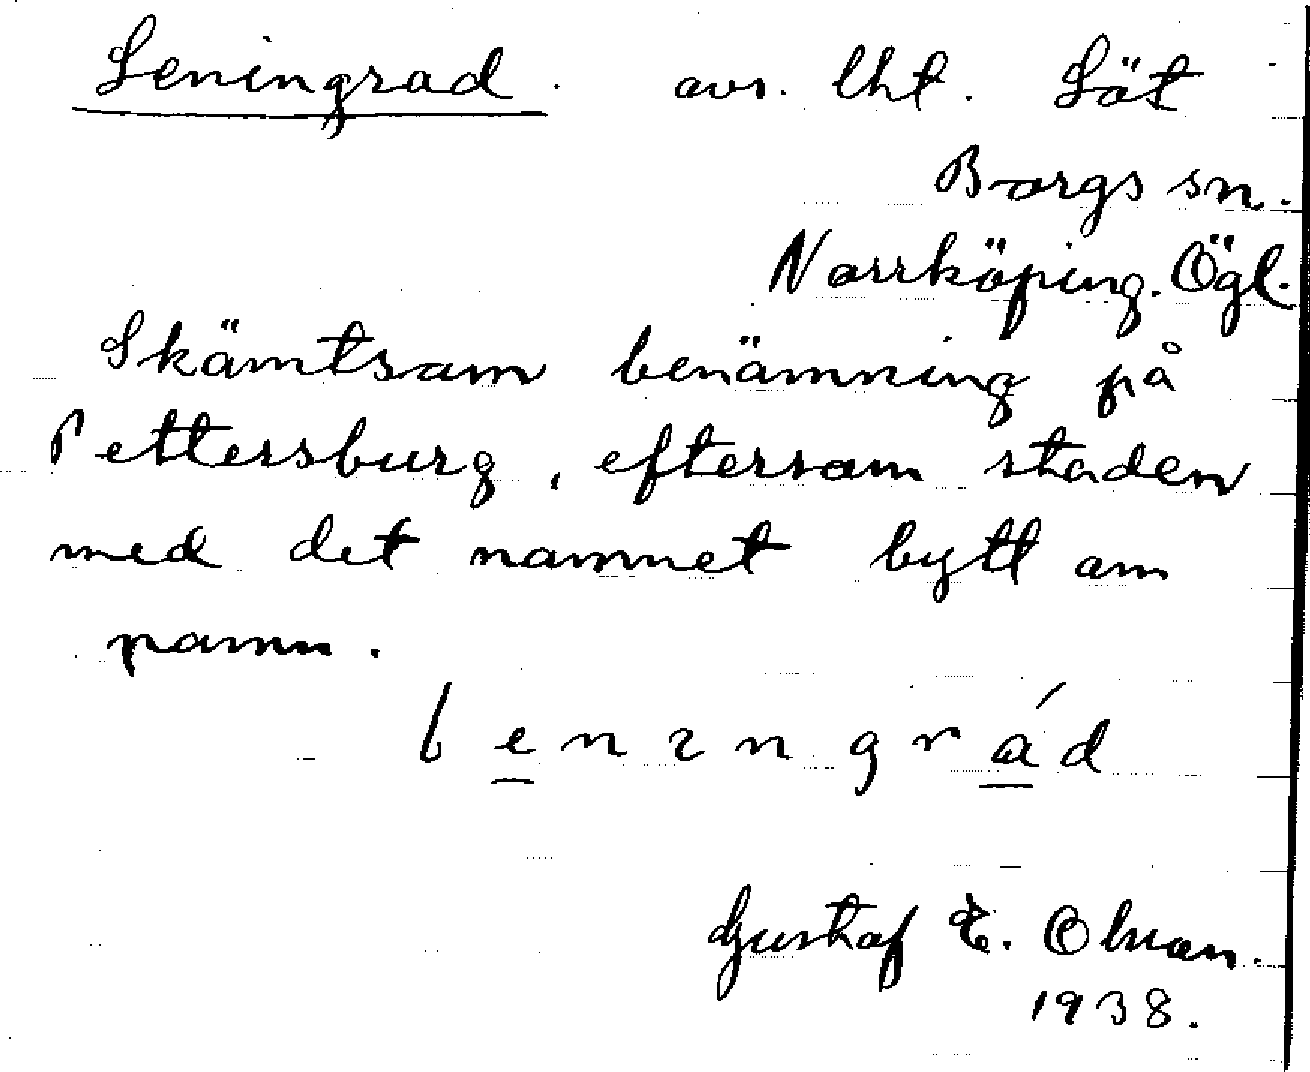 Leningrad. avs. lht. Löt
Borgs sn.
Norrköping. Ögl.
Skämtsam benämning på
Pettersburg, eftersom staden
med det namnet bytt om
namn.
l e n ı n g r á d
Gustaf E. Olsson.
1938.